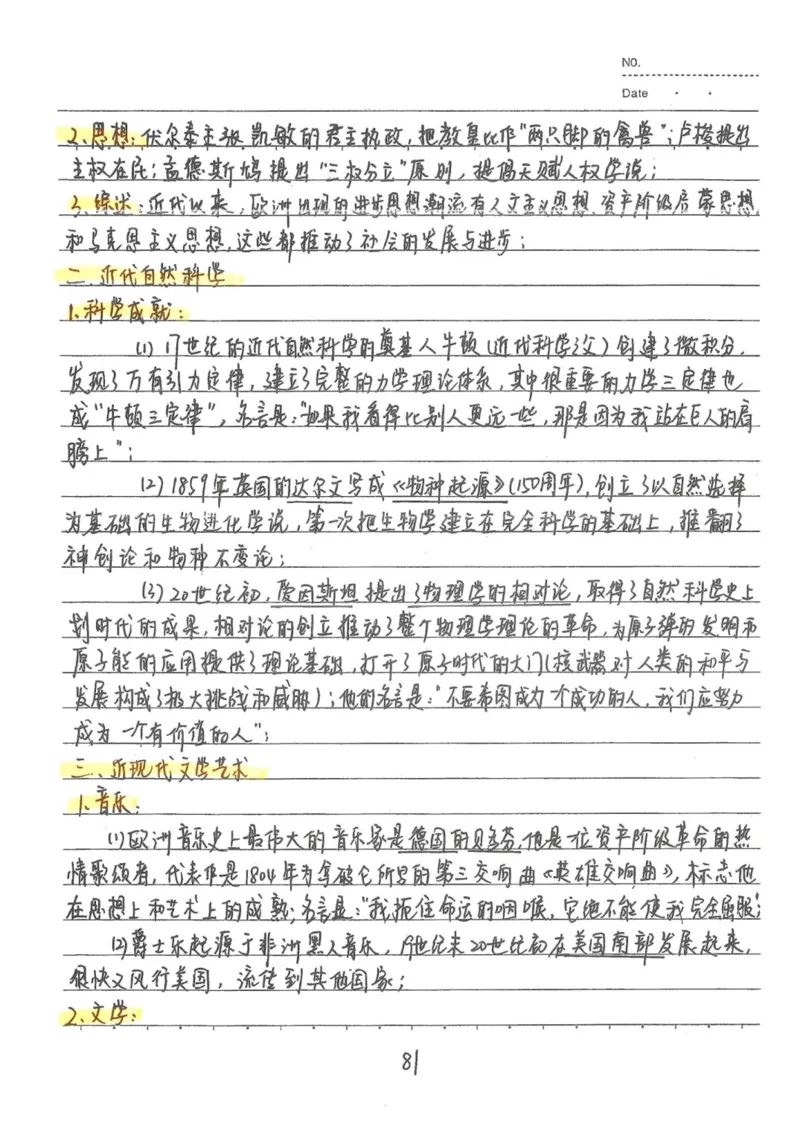 NO.
Date
2、思想：伏尔泰主张凯敏的君主执政，把教皇比作“两只脚的禽兽”；卢梭提出
主权在民；孟德斯鸠提出“三权分立”原则，提倡天赋人权学说；
3、综述：近代以来，欧洲出现的进步思想潮流有人文主义思想、资产阶级启蒙思想，
和马克思主义思想，这些都推动了社会的发展与进步；
二、近代自然科学
1、科学成就：
(1) 17世纪的近代自然科学的奠基人牛顿（近代科学之父）创建了微积分，
发现了万有引力定律，建立了完整的力学理论体系，其中很重要的力学三定律也
成“牛顿三定律”，名言是：“如果我看得比别人更远一些，那是因为我站在巨人的肩
膀上”；
(2) 1859年英国的达尔文写成《物种起源》（150周年），创立了以自然选择
为基础的生物进化学说，第一次把生物学建立在完全科学的基础上，推翻了
神创论和物种不变论；
(3) 20世纪初，爱因斯坦提出了物理学的相对论，取得了自然科学史上
划时代的成果，相对论的创立推动了整个物理学理论的革命，为原子弹的发明和
原子能的应用提供了理论基础，打开了原子时代的大门（核武器对人类的和平与
发展构成了极大挑战和威胁）；他的名言是：“不要希图成为一个成功的人，我们应努力
成为一个有价值的人”；
三、近现代文学艺术
1、音乐：
(1)欧洲音乐史上最伟大的音乐家是德国的贝多芬，他是一位资产阶级革命的热
情歌颂者，代表作是1804年为拿破仑所写的第三交响曲《英雄交响曲》，标志他
在思想上和艺术上的成熟；名言是：“我扼住命运的咽喉，它绝不能使我完全屈服”；
(2)爵士乐起源于非洲黑人音乐，19世纪末20世纪初在美国南部发展起来，
很快又风行美国，流传到其他国家；
2、文学：
81